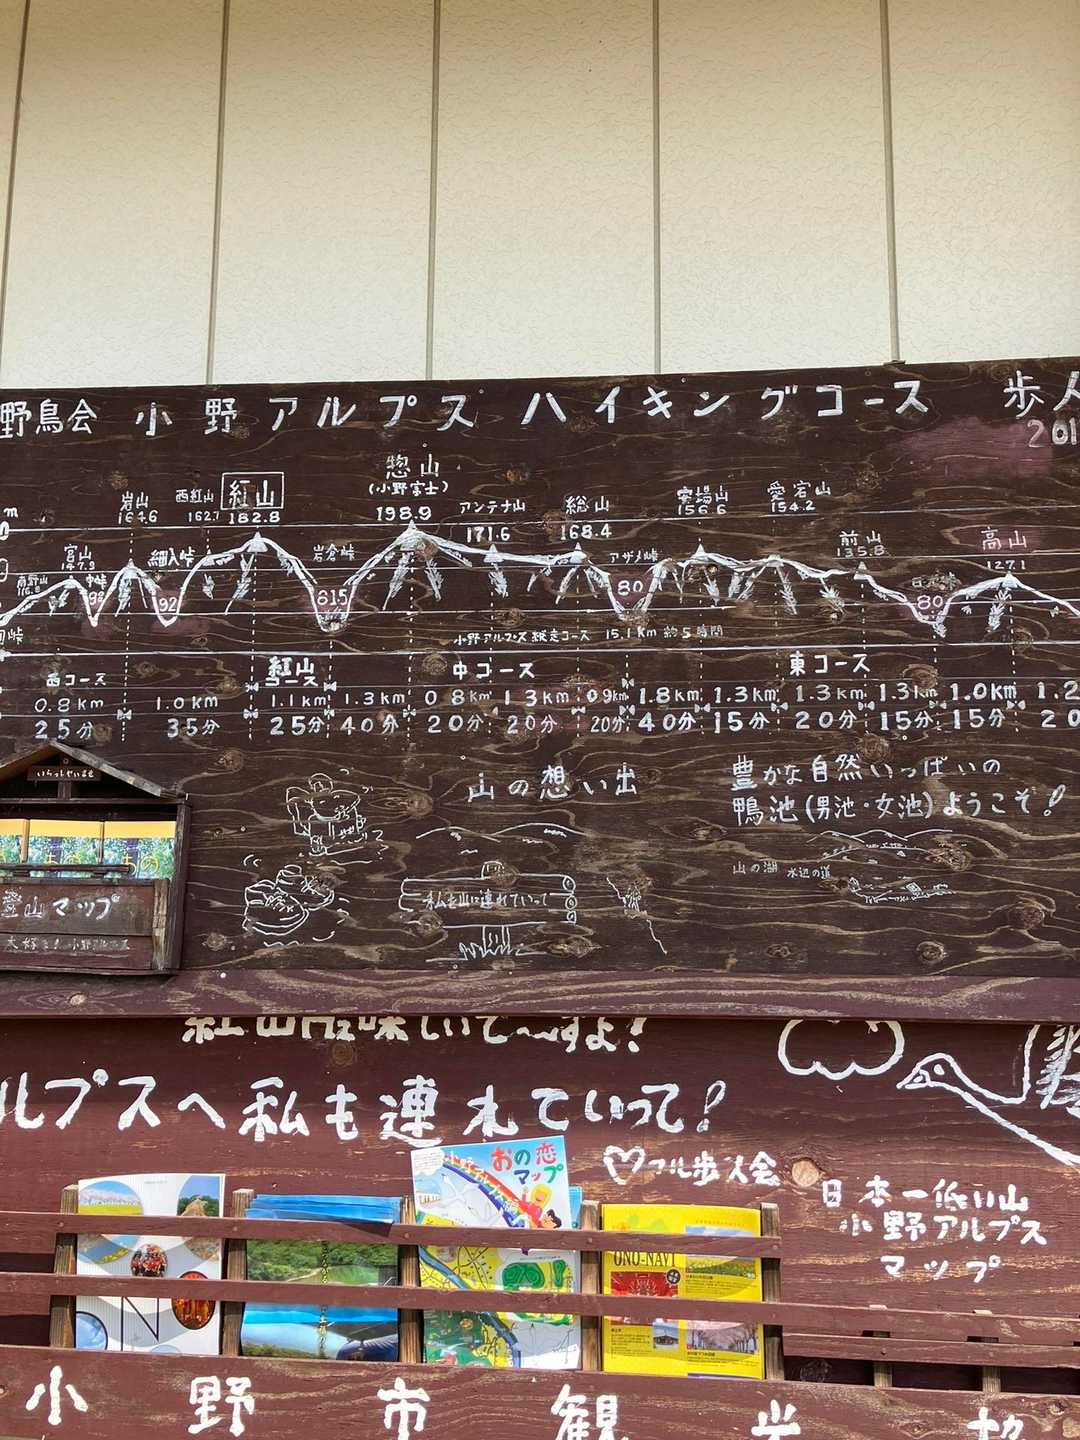 野鳥会 小野アルプス ハイキングコース 歩人
201
惣山
(小野富士)
198.9
岩山
164.6
西紅山
162.7
紅山
182.8
アンテナ山
171.6
総山
168.4
156.6
愛宕山
154.2
m
宮山
147.3
細入峠
岩倉峠
アザメ峠
前山
135.8
高山
127.1
前野山
116.8
中峠
92
80
80
小野アルプス 縦走コース 15.1Km 約5時間
西コース
紅山コース
中コース
東コース
0.8km 1.0km 1.1km 1.3km 0.8km 1.3km 0.9km 1.8km 1.3km 1.3km 1.3km 1.0km 1.2
25分 35分 25分 40分 20分 20分 20分 40分 15分 20分 15分 15分 20
いらっしゃいませ
山の想い出
豊かな自然いっぱいの
鴨池(男池・女池)ようこそ!
山の湖 水辺の道
私を山に連れていって
登山マップ
大好き! 小野アルプス
ルプスへ私も連れていって!
おの恋
マップ
歩人会
ONO-NAVI
日本一低い山
小野アルプス
マップ
小野市観光協